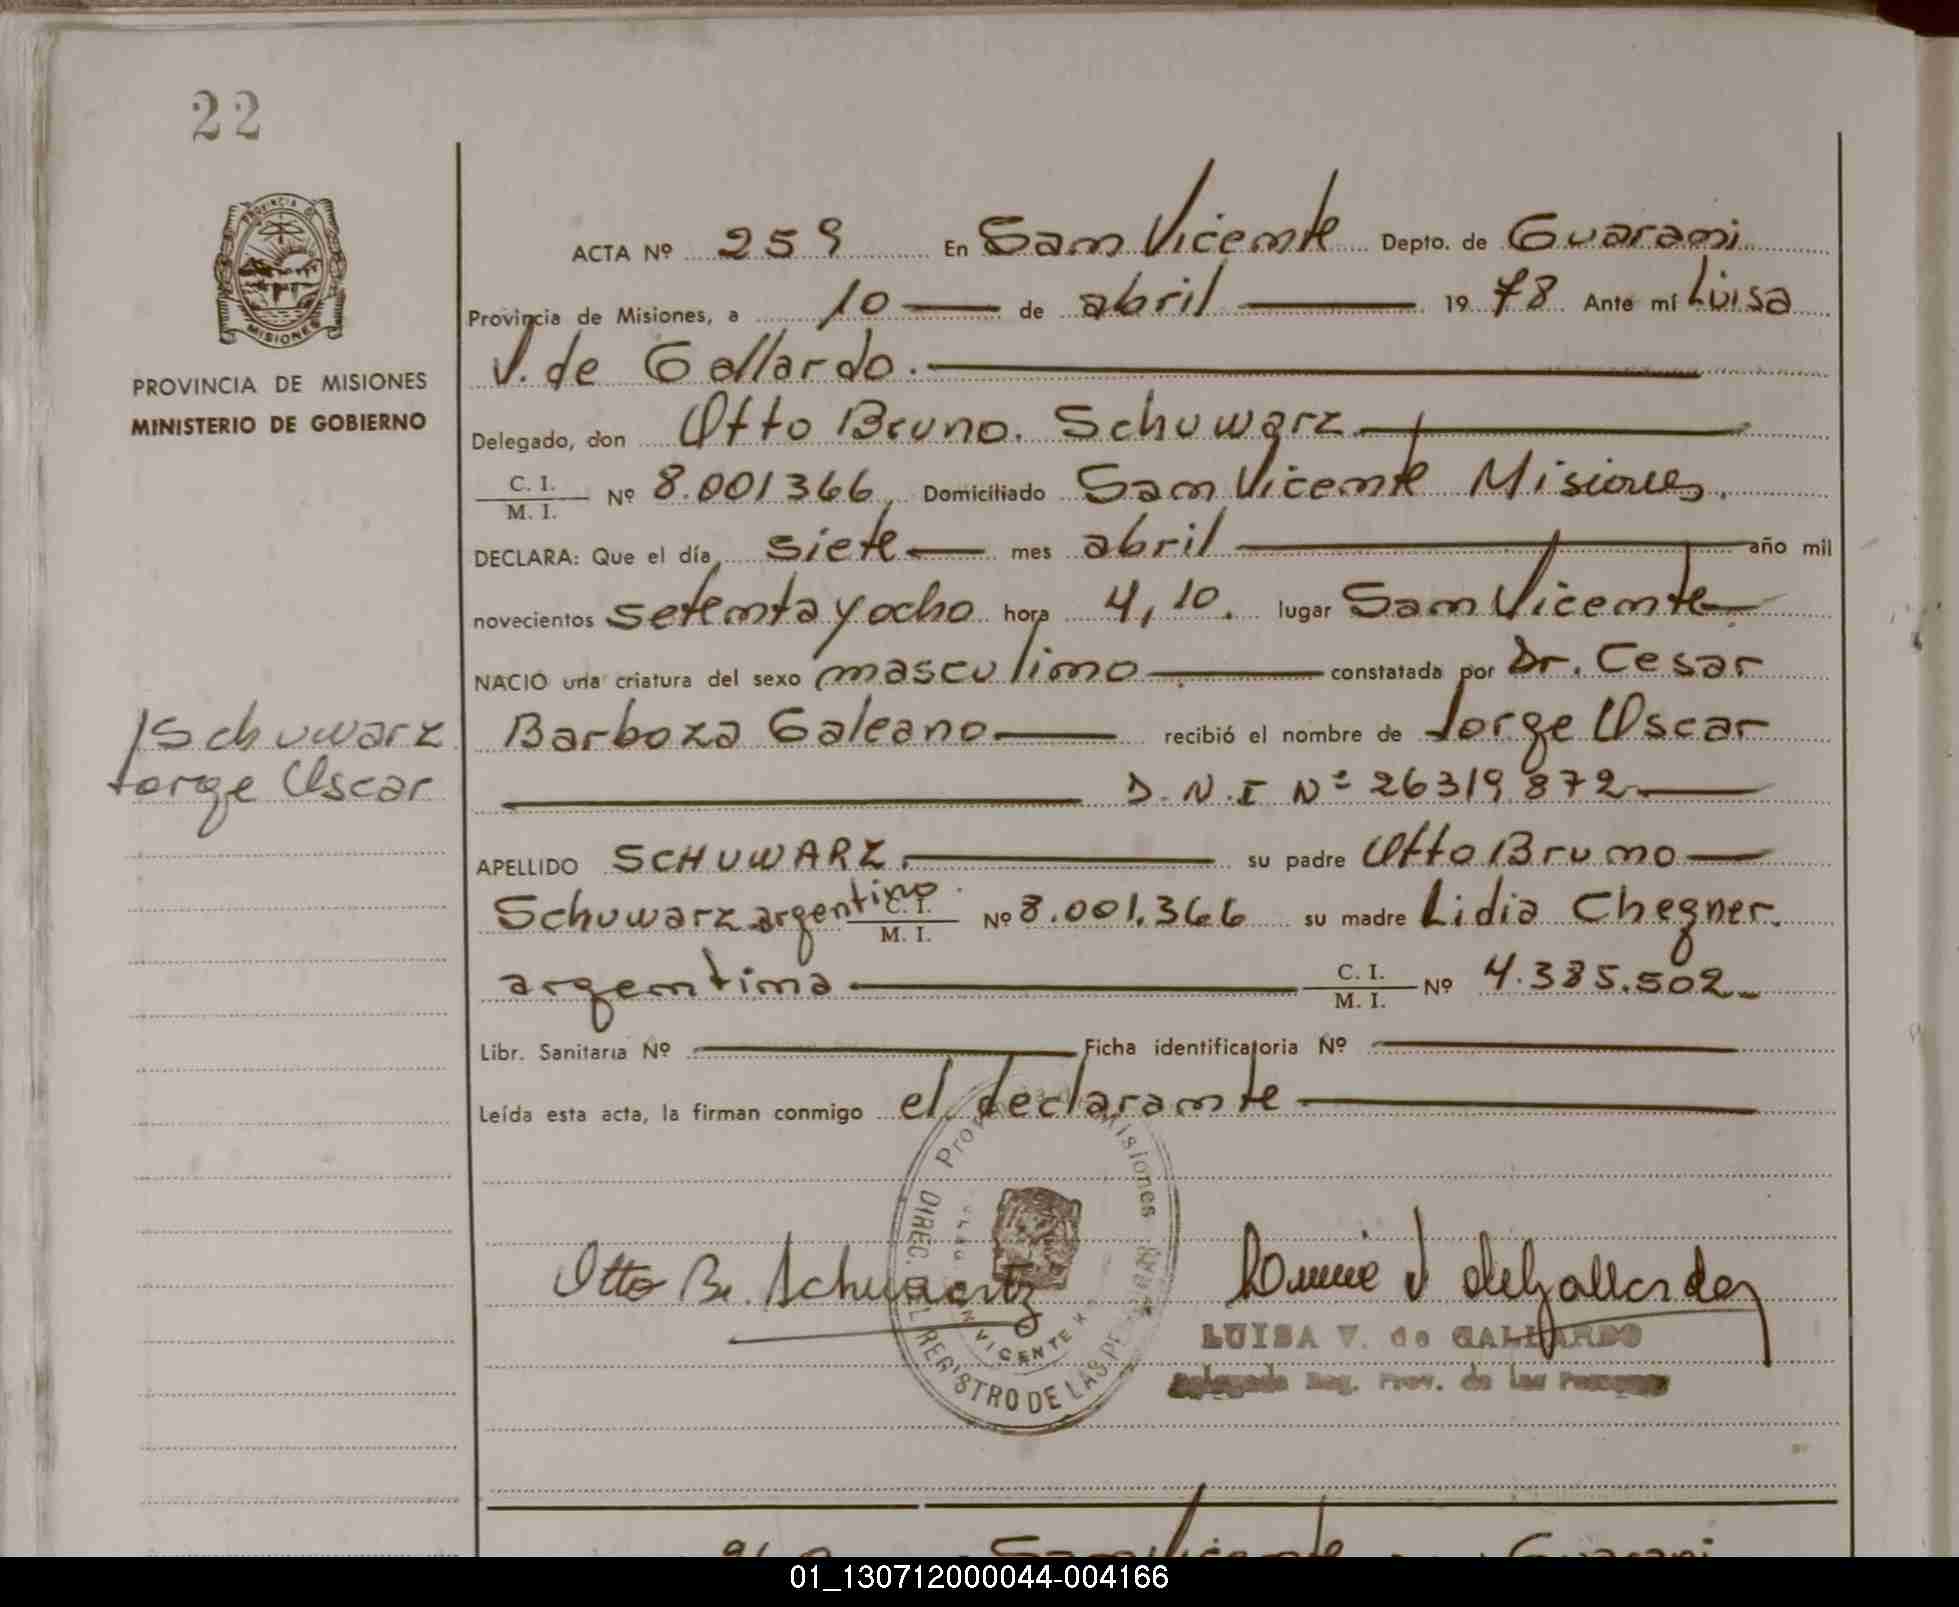 22
PROVINCIA DE MISIONES
MINISTERIO DE GOBIERNO
ACTA Nº 259 En San Vicente Depto. de Guarani
Provincia de Misiones, a 10 de abril 1978 Ante mí Luisa
V. de Gallardo.
Delegado, don Otto Bruno. Schuwarz
C. I. / M. I. Nº 8.001366, Domiciliado San Vicente Misiones.
DECLARA: Que el día, siete mes abril año mil
novecientos setenta y ocho hora 4,10. lugar San Vicente
NACIO una criatura del sexo masculino constatada por Dr. Cesar
Barboza Galeano recibió el nombre de Jorge Oscar
Schuwarz
Jorge Oscar
D.N.I Nº 26319872
APELLIDO SCHUWARZ. su padre Otto Bruno
Schuwarz argentino C. I. / M. I. Nº 8.001.366 su madre Lidia Chegner.
argentina C. I. / M. I. Nº 4.385.502
Libr. Sanitaria Nº Ficha identificatoria Nº
Leída esta acta, la firman conmigo el declarante
Otto B. Schwartz
V de Gallardo
DIREC. REGISTRO DE LAS
Misiones
VICENTE
LUISA V. de GALLARDO
Delegada Reg. Prov. de las Personas
San Vicente Guarani
01_130712000044-004166